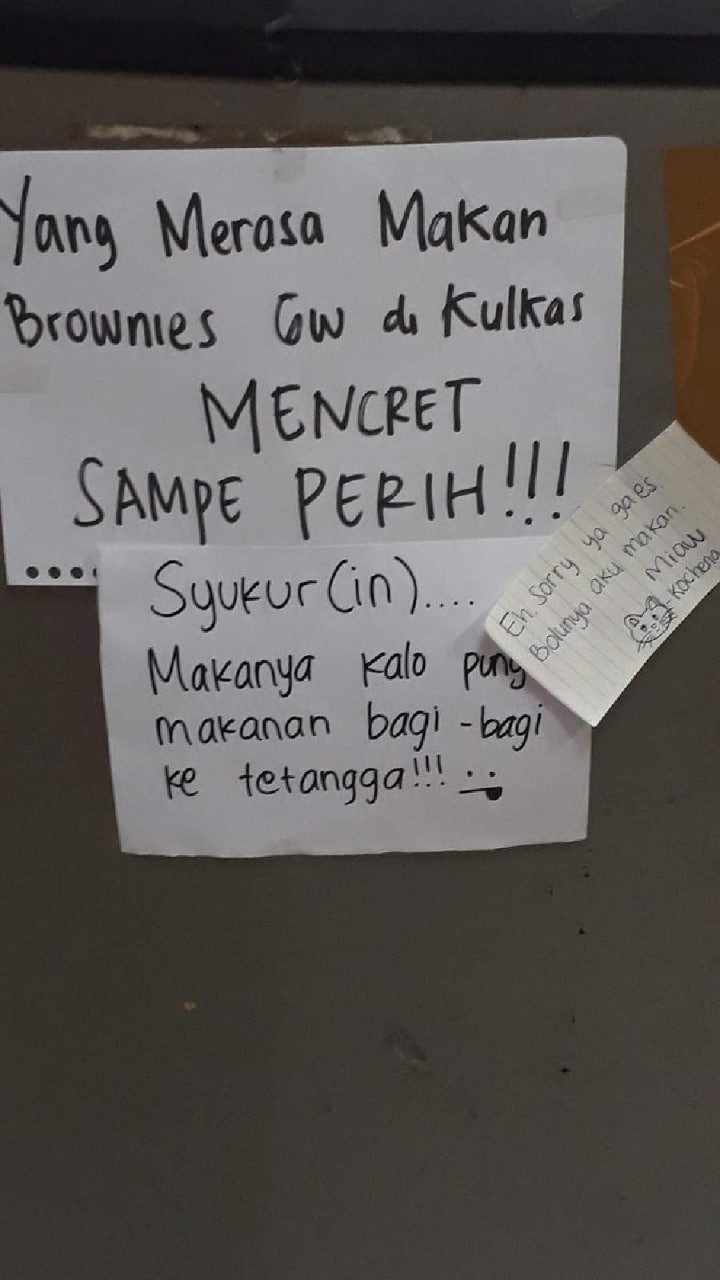 Yang Merasa Makan
Brownies Gw di Kulkas
MENCRET
SAMPE PERIH!!!
....
Syukur(in)....
Makanya kalo puny
makanan bagi-bagi
ke tetangga!!!
Eh, Sorry ya gaes.
Bolunya aku makan.
Miaw